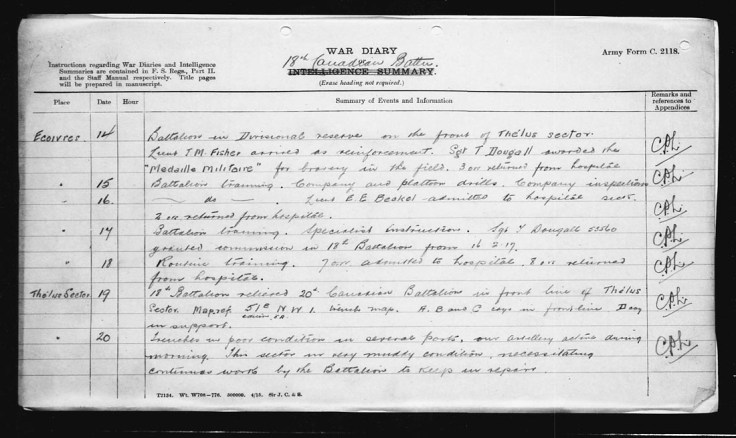 WAR DIARY
18th Canadian Battn.
INTELLIGENCE SUMMARY.
(Erase heading not required.)
Army Form C. 2118.
Instructions regarding War Diaries and Intelligence
Summaries are contained in F. S. Regs., Part II.
and the Staff Manual respectively. Title pages
will be prepared in manuscript.
Place Date Hour Summary of Events and Information Remarks and references to Appendices
Ecoivres 14 Battalion in Divisional reserve on the front of Thélus Sector.
Lieut T.M. Fisher arrived as reinforcement. Sgt T Dougall awarded the
"Medaille Militaire" for bravery in the field. 3 o.r. returned from hospital
" 15 Battalion training. Company and platoon drills. Company inspections
" 16. — do — . Lieut E.E. admitted to hospital sick.
2 o.r. returned from hospital.
" 17 Battalion training. Specialist instruction. Sgt T Dougall 53560
granted commission in 18th Battalion from 16 2 17.
" 18 Routine training. 7 o.r. admitted to hospital. 8 o.r. returned
from hospital.
Thélus Sector 19 18th Battalion relieved 20th Canadian Battalion in front line of Thélus
Sector. Map ref 51c N.W. 1. trench map. A. B and C coys in front line D coy
in support.
" 20 Trenches in poor condition in several parts. our artillery active during
morning. This sector in very muddy condition, necessitating
continuous work by the Battalion to keep in repair.
T2134. Wt. W708–776. 500000. 4/15. Sir J. C. & S.